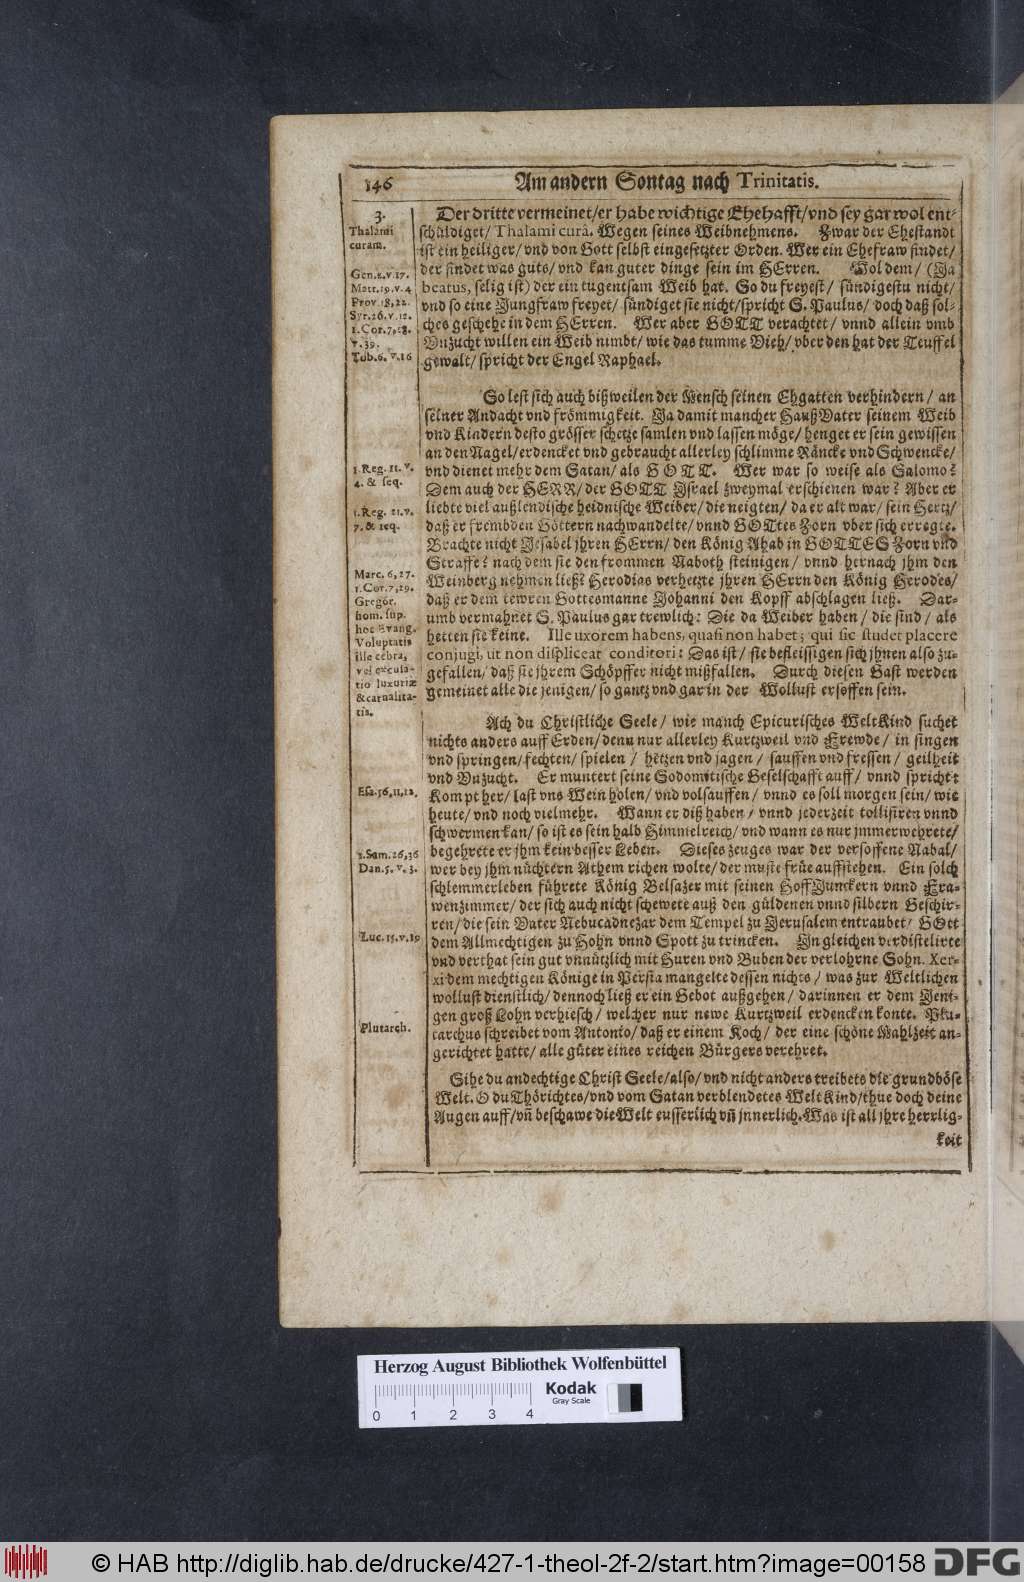 146
Am andern Sontag nach Trinitatis.
3.
Thalami
curam.
Gen. 2. v. 17.
Matt. 19. v. 4
Prov. 18, 22.
Syr. 26. v. 12.
1. Cor. 7, 28.
v. 39.
Tob. 6. v. 16
Der dritte vermeinet/er habe wichtige Ehehafft/vnd sey gar wol ent-
schüldiget/ Thalami curâ. Wegen seines Weibnehmens. Zwar der Ehestandt
ist ein heiliger/ vnd von Gott selbst eingesetzter Orden. Wer ein Ehefraw findet/
der findet was guts/ vnd kan guter dinge sein im HErren. Wol dem/ (Ja
beatus, selig ist) der ein tugentsam Weib hat. So du freyest/ sündigestu nicht/
vnd so eine Jungfraw freyet/ sündiget sie nicht/spricht S. Paulus/ doch daß sol-
ches geschehe in dem HErren. Wer aber GOTT verachtet/ vnnd allein vmb
Vnzucht willen ein Weib nimbt/ wie das tumme Vieh/ vber den hat der Teuffel
gewalt/ spricht der Engel Raphael.
1. Reg. 11. v.
4. & seq.
1. Reg. 21. v.
7. & seq.
Marc. 6, 27.
1. Cor. 7, 29.
Gregor.
hom. sup.
hoc Evang.
Voluptatis
illecebra,
vel
tio luxuriæ
& carnalita-
tis.
So lest sich auch bißweilen der Mensch seinen Ehgatten verhindern/ an
seiner Andacht vnd frömmigkeit. Ja damit mancher HaußVater seinem Weib
vnd Kindern desto grösser schetze samlen vnd lassen möge/ henget er sein gewissen
an den Nagel/erdencket vnd gebraucht allerley schlimme Räncke vnd Schwencke/
vnd dienet mehr dem Satan/ als GOTT. Wer war so weise als Salomo?
Dem auch der HERR/ der GOTT Israel zweymal erschienen war? Aber er
liebte viel außlendische heidnische Weiber/ die neigten/ da er alt war/ sein Hertz/
daß er frembden Göttern nachwandelte/ vnnd GOttes Zorn vber sich erregte.
Brachte nicht Jesabel jhren HErrn/ den König Ahab in GOTTES Zorn vnd
Straffe? nach dem sie den frommen Naboth steinigen/ vnnd hernach jhm den
Weinberg nehmen ließ? Herodias verhetzte jhren HErrn den König Herodes/
daß er dem tewren Gottesmanne Johanni den Kopff abschlagen ließ. Dar-
umb vermahnet S. Paulus gar trewlich: Die da Weiber haben/ die sind/ als
hetten sie keine. Ille uxorem habens, quasi non habet; qui sic studet placere
conjugi, ut non displiceat conditori: Das ist/ sie befleissigen sich jhnen also zu-
gefallen/ daß sie jhrem Schöpffer nicht mißfallen. Durch diesen Gast werden
gemeinet alle die jenigen/ so gantz vnd gar in der Wollust ersoffen sein.
Esa. 56, 11, 12.
1. Sam. 26, 36
Dan. 5. v. 3.
Luc. 15. v. 19
Plutarch.
Ach du Christliche Seele/ wie manch Epicurisches WeltKind suchet
nichts anders auff Erden/ denn nur allerley Kurtzweil vnd Frewde/ in singen
vnd springen/ fechten/ spielen/ hetzen vnd jagen/ sauffen vnd fressen/ geilheit
vnd Vnzucht. Er muntert seine Sodomitische Geselschafft auff/ vnnd spricht:
Kompt her/ last vns Wein holen/ vnd volsauffen/ vnnd es soll morgen sein/ wie
heute/ vnd noch vielmehr. Wann er diß haben/ vnnd jederzeit tollisiren vnnd
schwermen kan/ so ist es sein halb Himmelreich/ vnd wann es nur jmmerwehrete/
begehrete er jhm kein besser Leben. Dieses zeuges war der versoffene Nabal/
wer bey jhm nüchtern Athem richen wolte/ der muste früe auffstehen. Ein solch
schlemmerleben führete König Belsazer mit seinen HoffJunckern vnnd Fra-
wenzimmer/ der sich auch nicht schewete auß den güldenen vnnd silbern Geschir-
ren/ die sein Vater Nebucadnezar dem Tempel zu Jerusalem entraubet/ GOtt
dem Allmechtigen zu Hohn vnnd Spott zu trincken. In gleichen verdistelirte
vnd verthat sein gut vnnützlich mit Huren vnd Buben der verlohrne Sohn. Xer-
xi dem mechtigen Könige in Persia mangelte dessen nichts/ was zur Weltlichen
wollust dienstlich/ dennoch ließ er ein Gebot außgehen/ darinnen er dem Jeni-
gen groß Lohn verhiesch/ welcher nur newe Kurtzweil erdencken konte. Plu-
tarchus schreibet vom Antonio/ daß er einem Koch/ der eine schöne Mahlzeit an-
gerichtet hatte/ alle güter eines reichen Bürgers verehret.
Sihe du andechtige Christ Seele/also/ vnd nicht anders treibets die grundböse
Welt. O du Thörichtes/vnd vom Satan verblendetes WeltKind/thue doch deine
Augen auff/vñ beschawe die Welt eusserlich vñ jnnerlich. Was ist all jhre herrlig-
keit
Herzog August Bibliothek Wolfenbüttel
Kodak
Gray Scale
0 1 2 3 4
© HAB http://diglib.hab.de/drucke/427-1-theol-2f-2/start.htm?image=00158
DFG